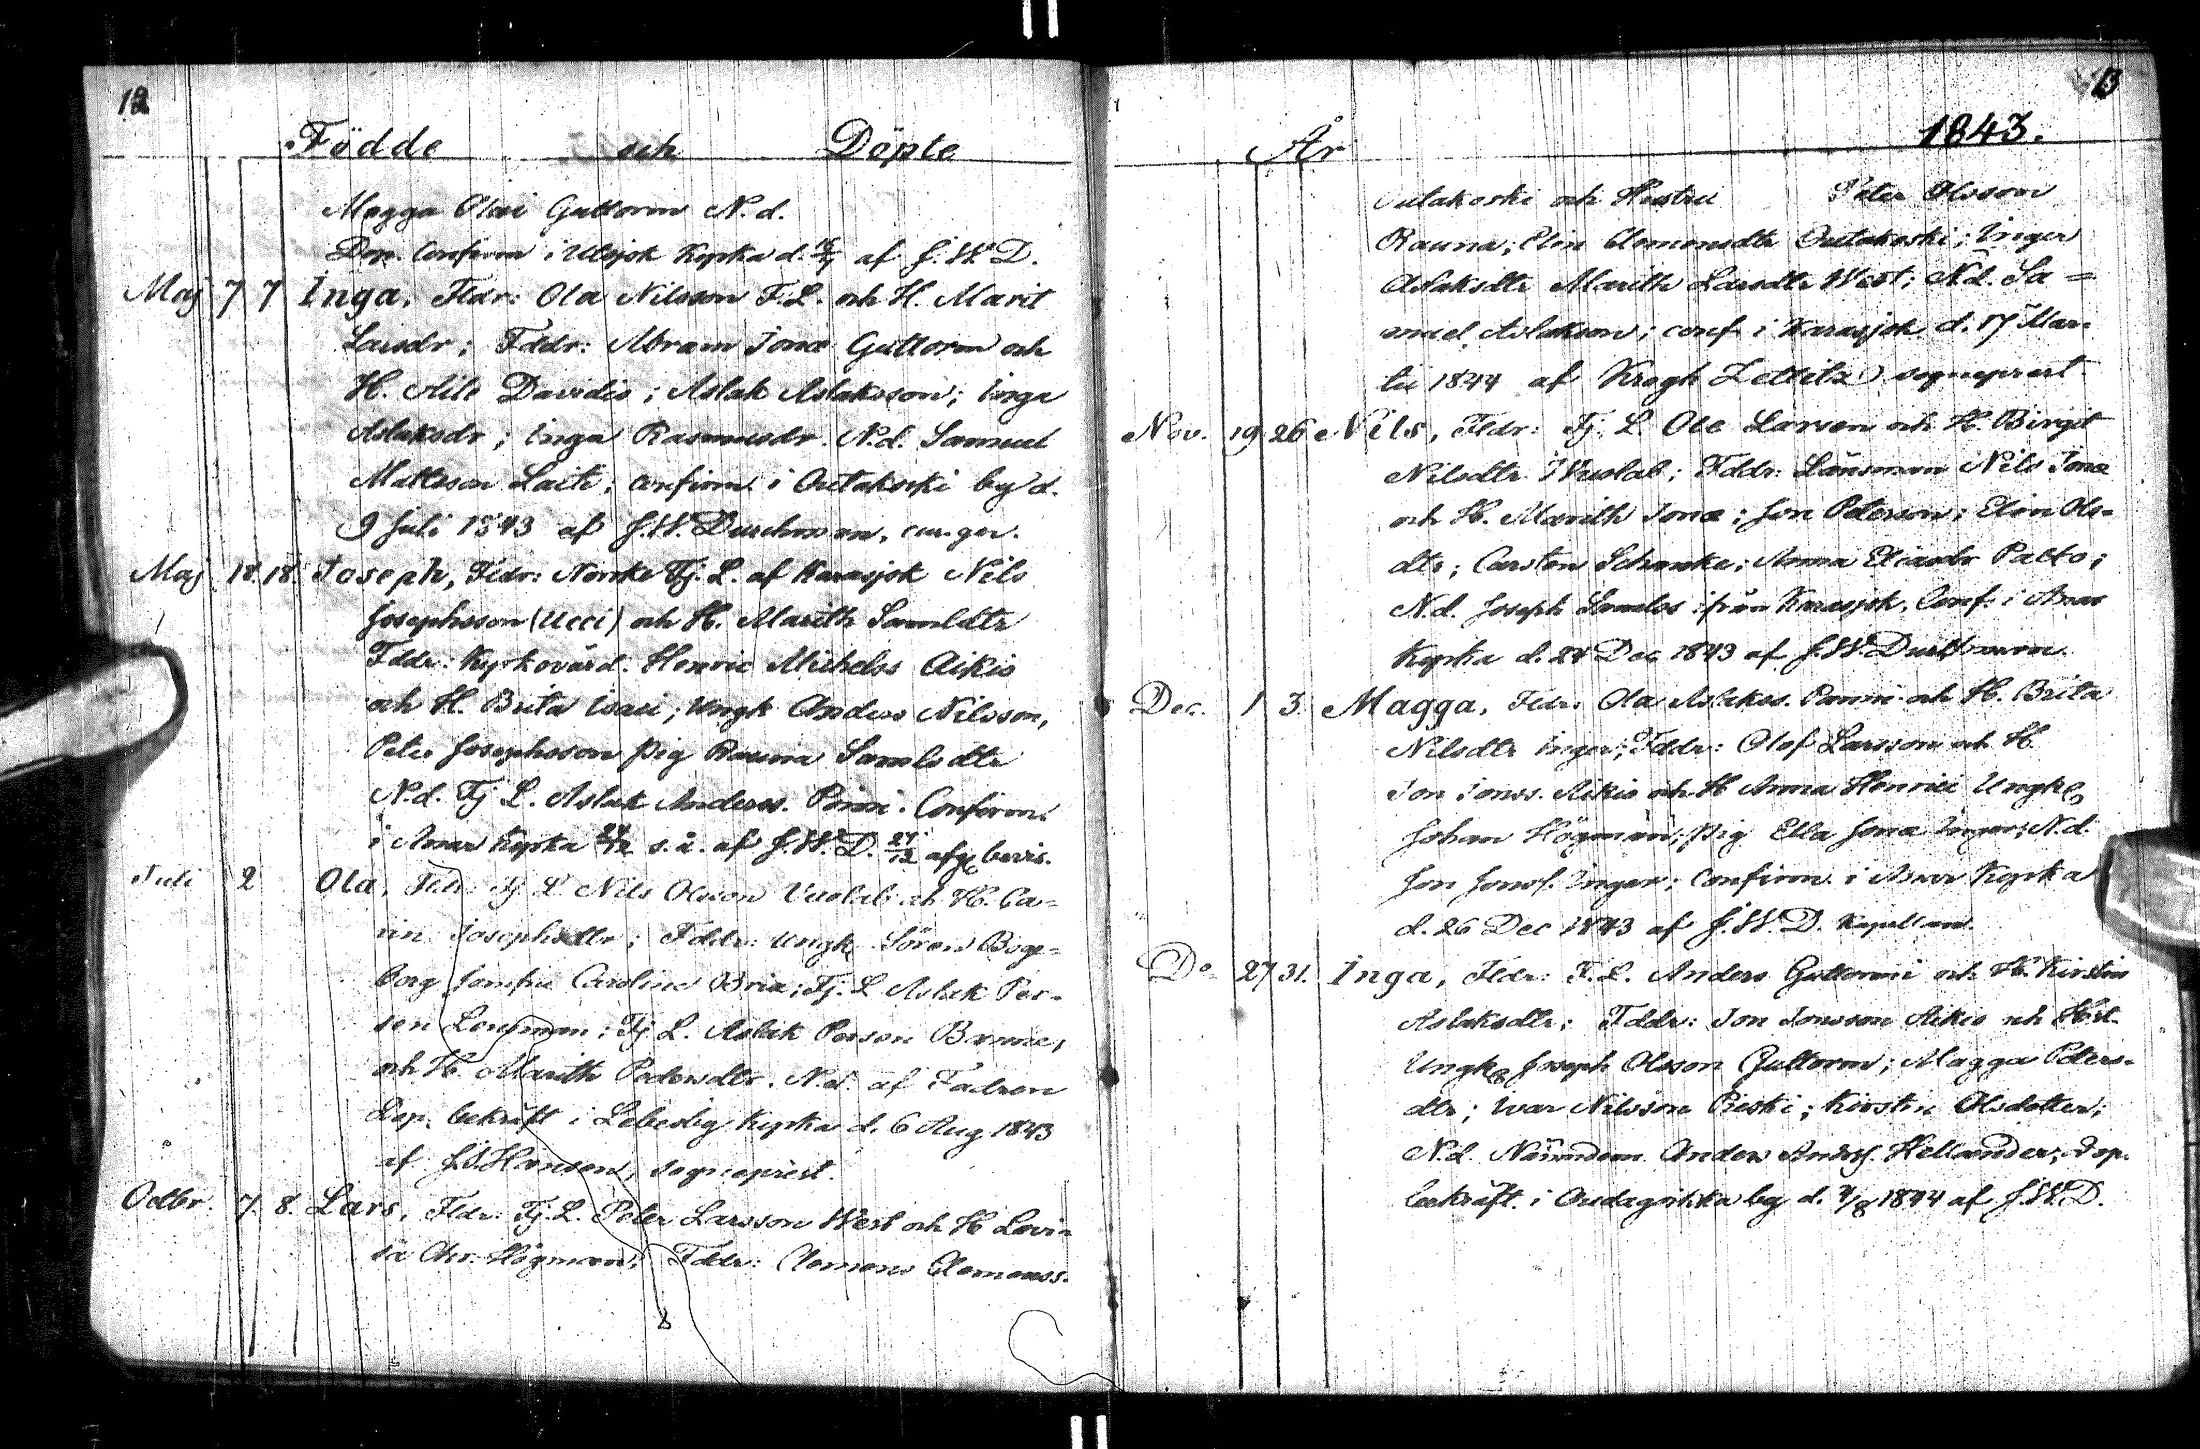 12
Födde och Döpte
Magga Olai Guttorm N.d.
Dop. Confirm i Utsjok Kyrka d. af J.W.D.
Maj 7 7 Inga, Fldr: Ola Nilsson F.L. och H. Marit
Larsdr; Fddr: Abram Jonæ Guttorm och
H. Aile Davidis; Aslak Aslaksson; Inga
Aslaksdr; Inga Rasmusdr. N.d. Samuel
Mattsson Laiti; confirm. i Outakoski by d.
9 Juli 1843 af J.W. Durchman, cur. ger.
Maj 18. 18. Joseph, Fldr: Norske Fj. L. af Karasjok Nils
Josephsson (Ucci) och H. Marith Samldtr
Fddr: Kyrkovärd. Henric Michelss Aikio
och H. Brita Isaci; Ungk Anders Nilsson,
Peter Josephsson pig Rauna Samls dtr
N.d. Fj L. Aslak Anderss. Confirm.
i Enar Kyrka 24/12 s.å. af J.W.D. 27/12 bevis.
Juli 2 Ola, Fldr Fj L Nils Olsson Vuolab och H. Ca-
rin Josephsdtr; Fddr: Ungk Sören
borg Jomfru Carolina; Fj. L Aslak Per-
sen; Fj L. Aslak Person
och H Marith Pedersdtr. N.d. af Fadren
Dop. bekräft i Lebesby Kyrka d. 6 Aug 1843
af J.S. Hansen, sogneprest.
Octbr. 7. 8. Lars, Fldr: Fj. L. Peter Larsson West och H Lovi-
sa Chr. Högman; Fddr: Clemens Clemenss.
13
År 1843.
Outakoski och Hustru Peter Olsson
Rauna; Elin Clemensdtr Outakoski; Inger
Aslaksdtr Marith Larsdtr West; N.d. Sa=
muel Aslakson; conf i Karasjok d. 17 Mar-
tii 1844 af Krogh Zettlitz sogneprest
Nov. 19 26 Nils, Fldr: Fj. L. Ole Larsen och H. Birgit
Nilsdtr Wuolab; Fddr: Länsman Nils Jonæ
och H. Marith Jonæ; Jon Peterson; Elin Ols-
dtr; Carsten Schanke; Anna Eliasdtr Palto;
N.d. Joseph Samlss ifrån Karasjok. Conf. i Enar
Kyrka d. 24 Dec 1843 af J.W. Durchman.
Dec. 1 3 Magga, Fldr: Ola Aslakss. och H. Brita
Nilsdtr Inger; Fddr: Olof Larsson och H.
Jon Jonss. Aikio och H Anna Henrici Ungk
Johan Högman; pig Ella Jonæ Inger; N.d.
Jon Jonss. Inger; Confirm. i Enar Kyrka
d. 26 Dec 1843 af J.W.D. Kapellan.
Do 27 31. Inga, Fldr: F.L. Anders Guttormi och H. Kirstin
Aslaksdtr; Fddr: Jon Jonsson Aikio och
Ungk Joseph Olsson Guttorm; Magga Peters-
dtr; Ivar Nilsson Pieski; Kirstin Olsdotter;
N.d. Nämndem. Anders Anderss. Hellander; Dop.
bekräft. i by d. 1844 af J.W.D.